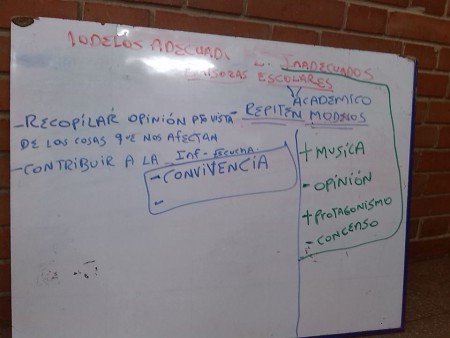 MODELOS ADECUAD. E. INADECUADOS
EMISORAS ESCOLARES
ACADEMICO
- REPITEN MODELOS
- RECOPILAR OPINIÓN
DE LOS COSAS QUE NOS AFECTAN
- CONTRIBUIR A LA INF - ESCUCHA
- CONVIVENCIA
-
+ MUSICA
- OPINIÓN
+ PROTAGONISMO
- CONCENSO